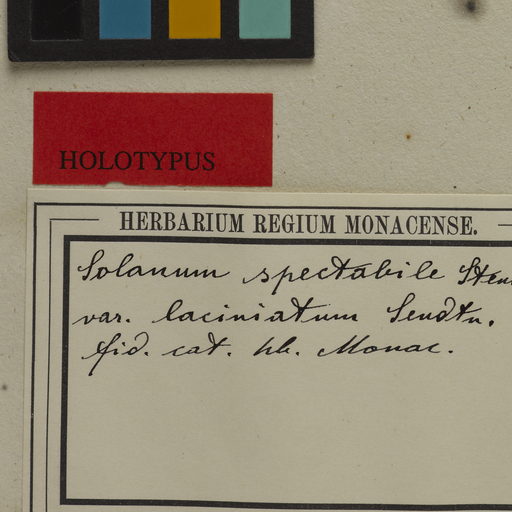 HOLOTYPUS
HERBARIUM REGIUM MONACENSE.
Solanum spectabile
var. laciniatum Sendtn.
fid. cat. hb. Monac.